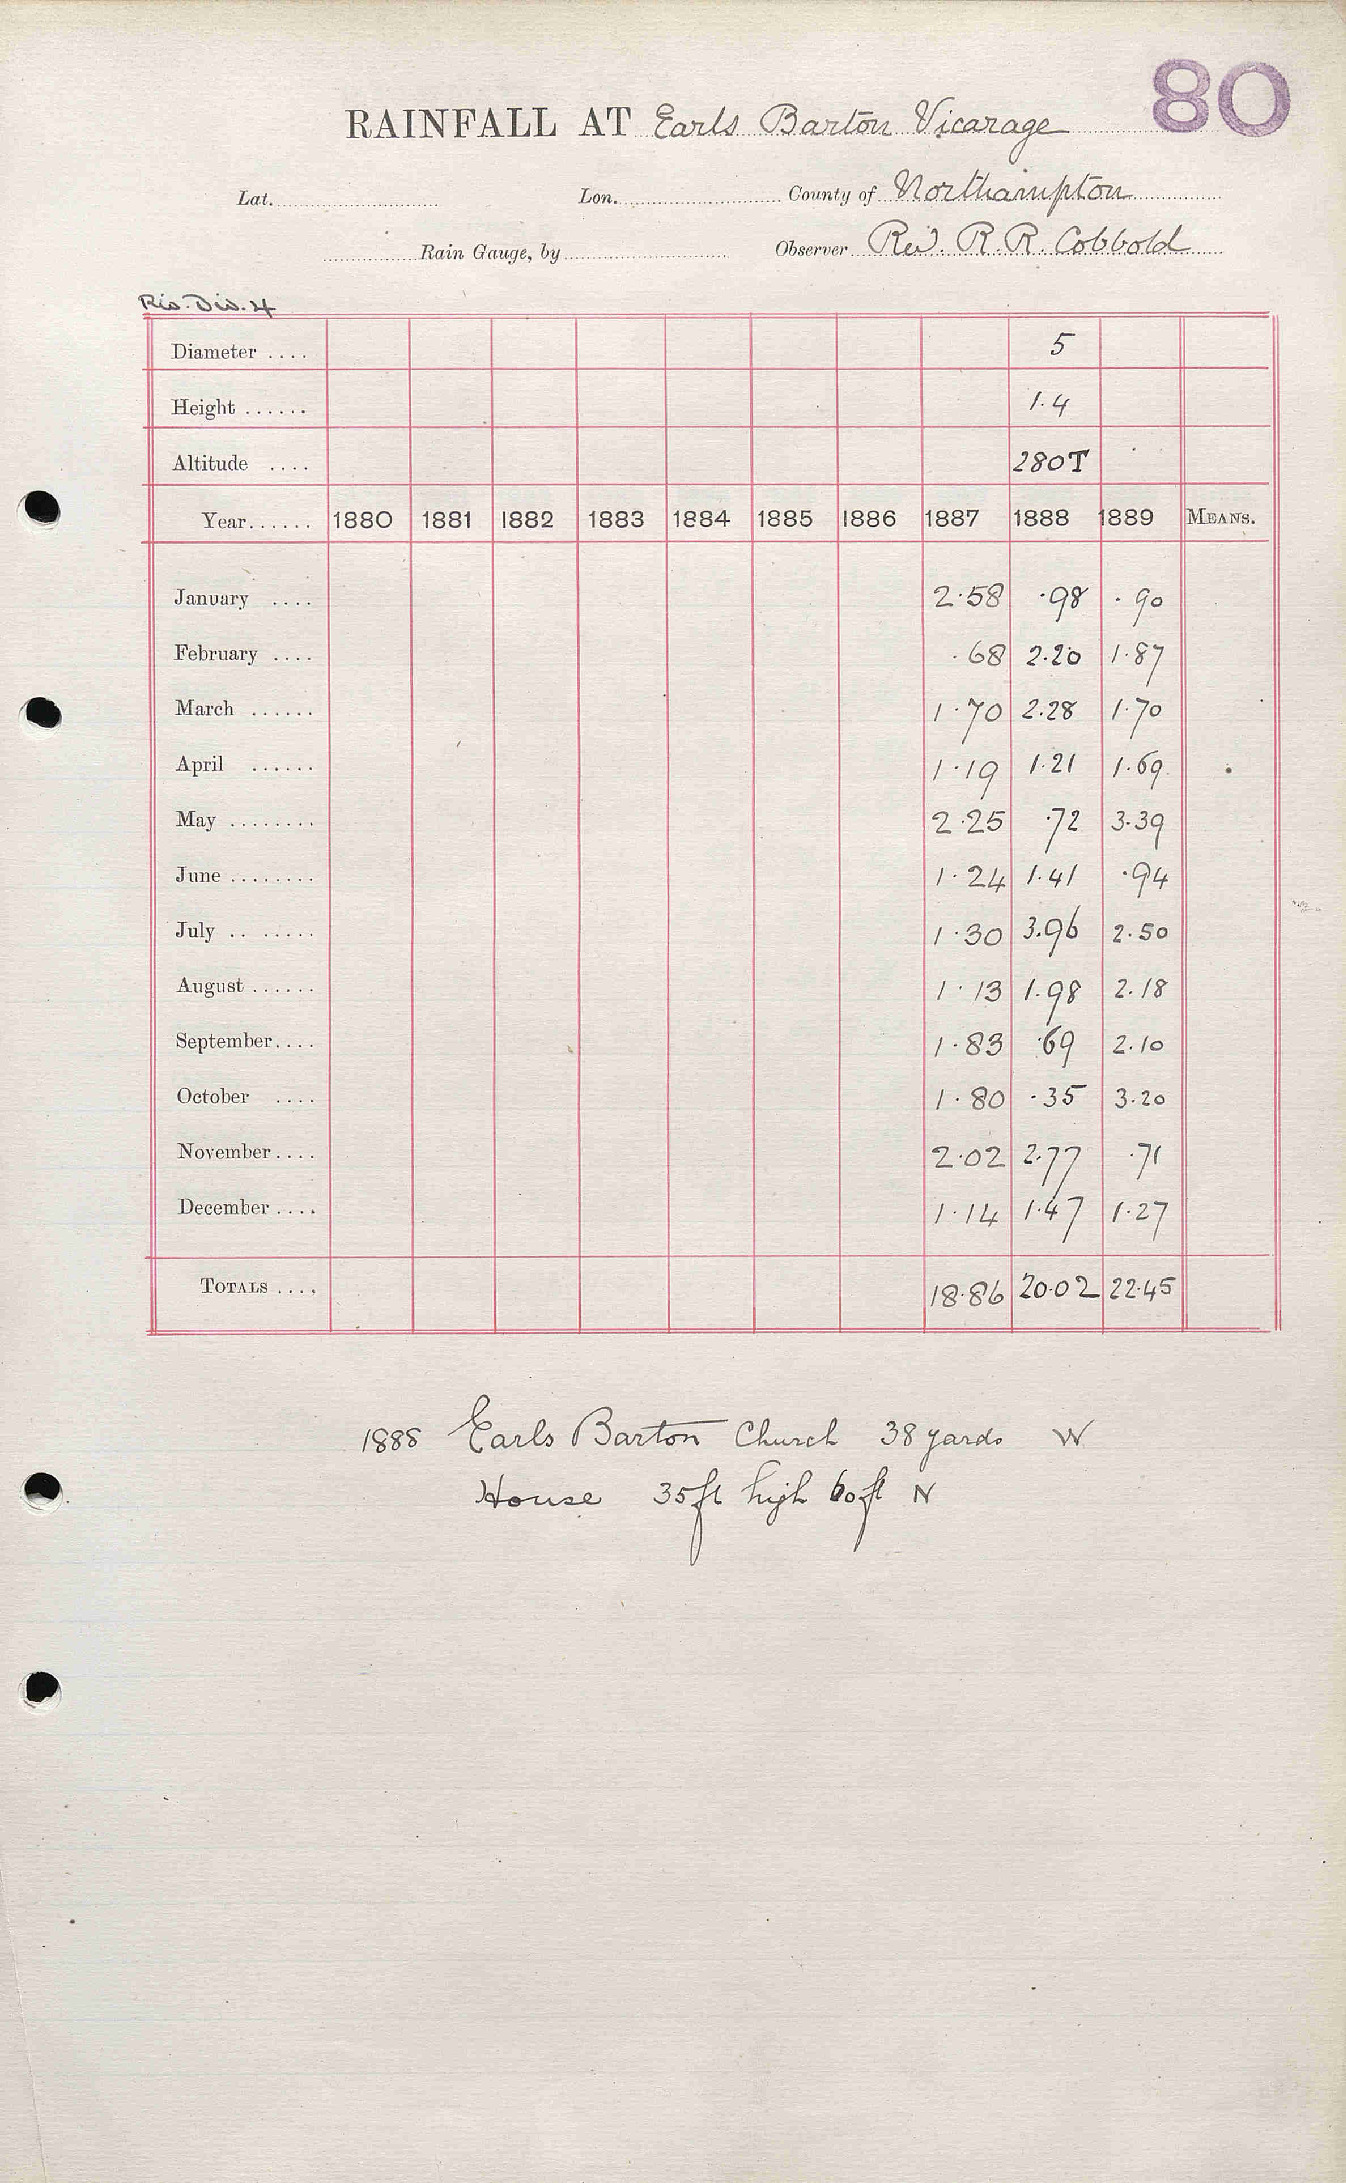 80
RAINFALL AT Earls Barton Vicarage
Lat. Lon. County of Northampton
Rain Gauge, by Observer Rev. R. R. Cobbold
Riv. Dis. 4
Diameter .... 5
Height ...... 1.4
Altitude .... 280T
Year...... 1880 1881 1882 1883 1884 1885 1886 1887 1888 1889 MEANS.
January .... 2.58 .98 .90
February .... .68 2.20 1.87
March ...... 1.70 2.28 1.70
April ...... 1.19 1.21 1.69
May ........ 2.25 .72 3.39
June ........ 1.24 1.41 .94
July .. ..... 1.30 3.96 2.50
August ...... 1.13 1.98 2.18
September.... 1.83 .69 2.10
October .... 1.80 .35 3.20
November.... 2.02 2.77 .71
December.... 1.14 1.47 1.27
TOTALS .... 18.86 20.02 22.45
1888 Earls Barton Church 38 yards W
House 35ft high 60ft N